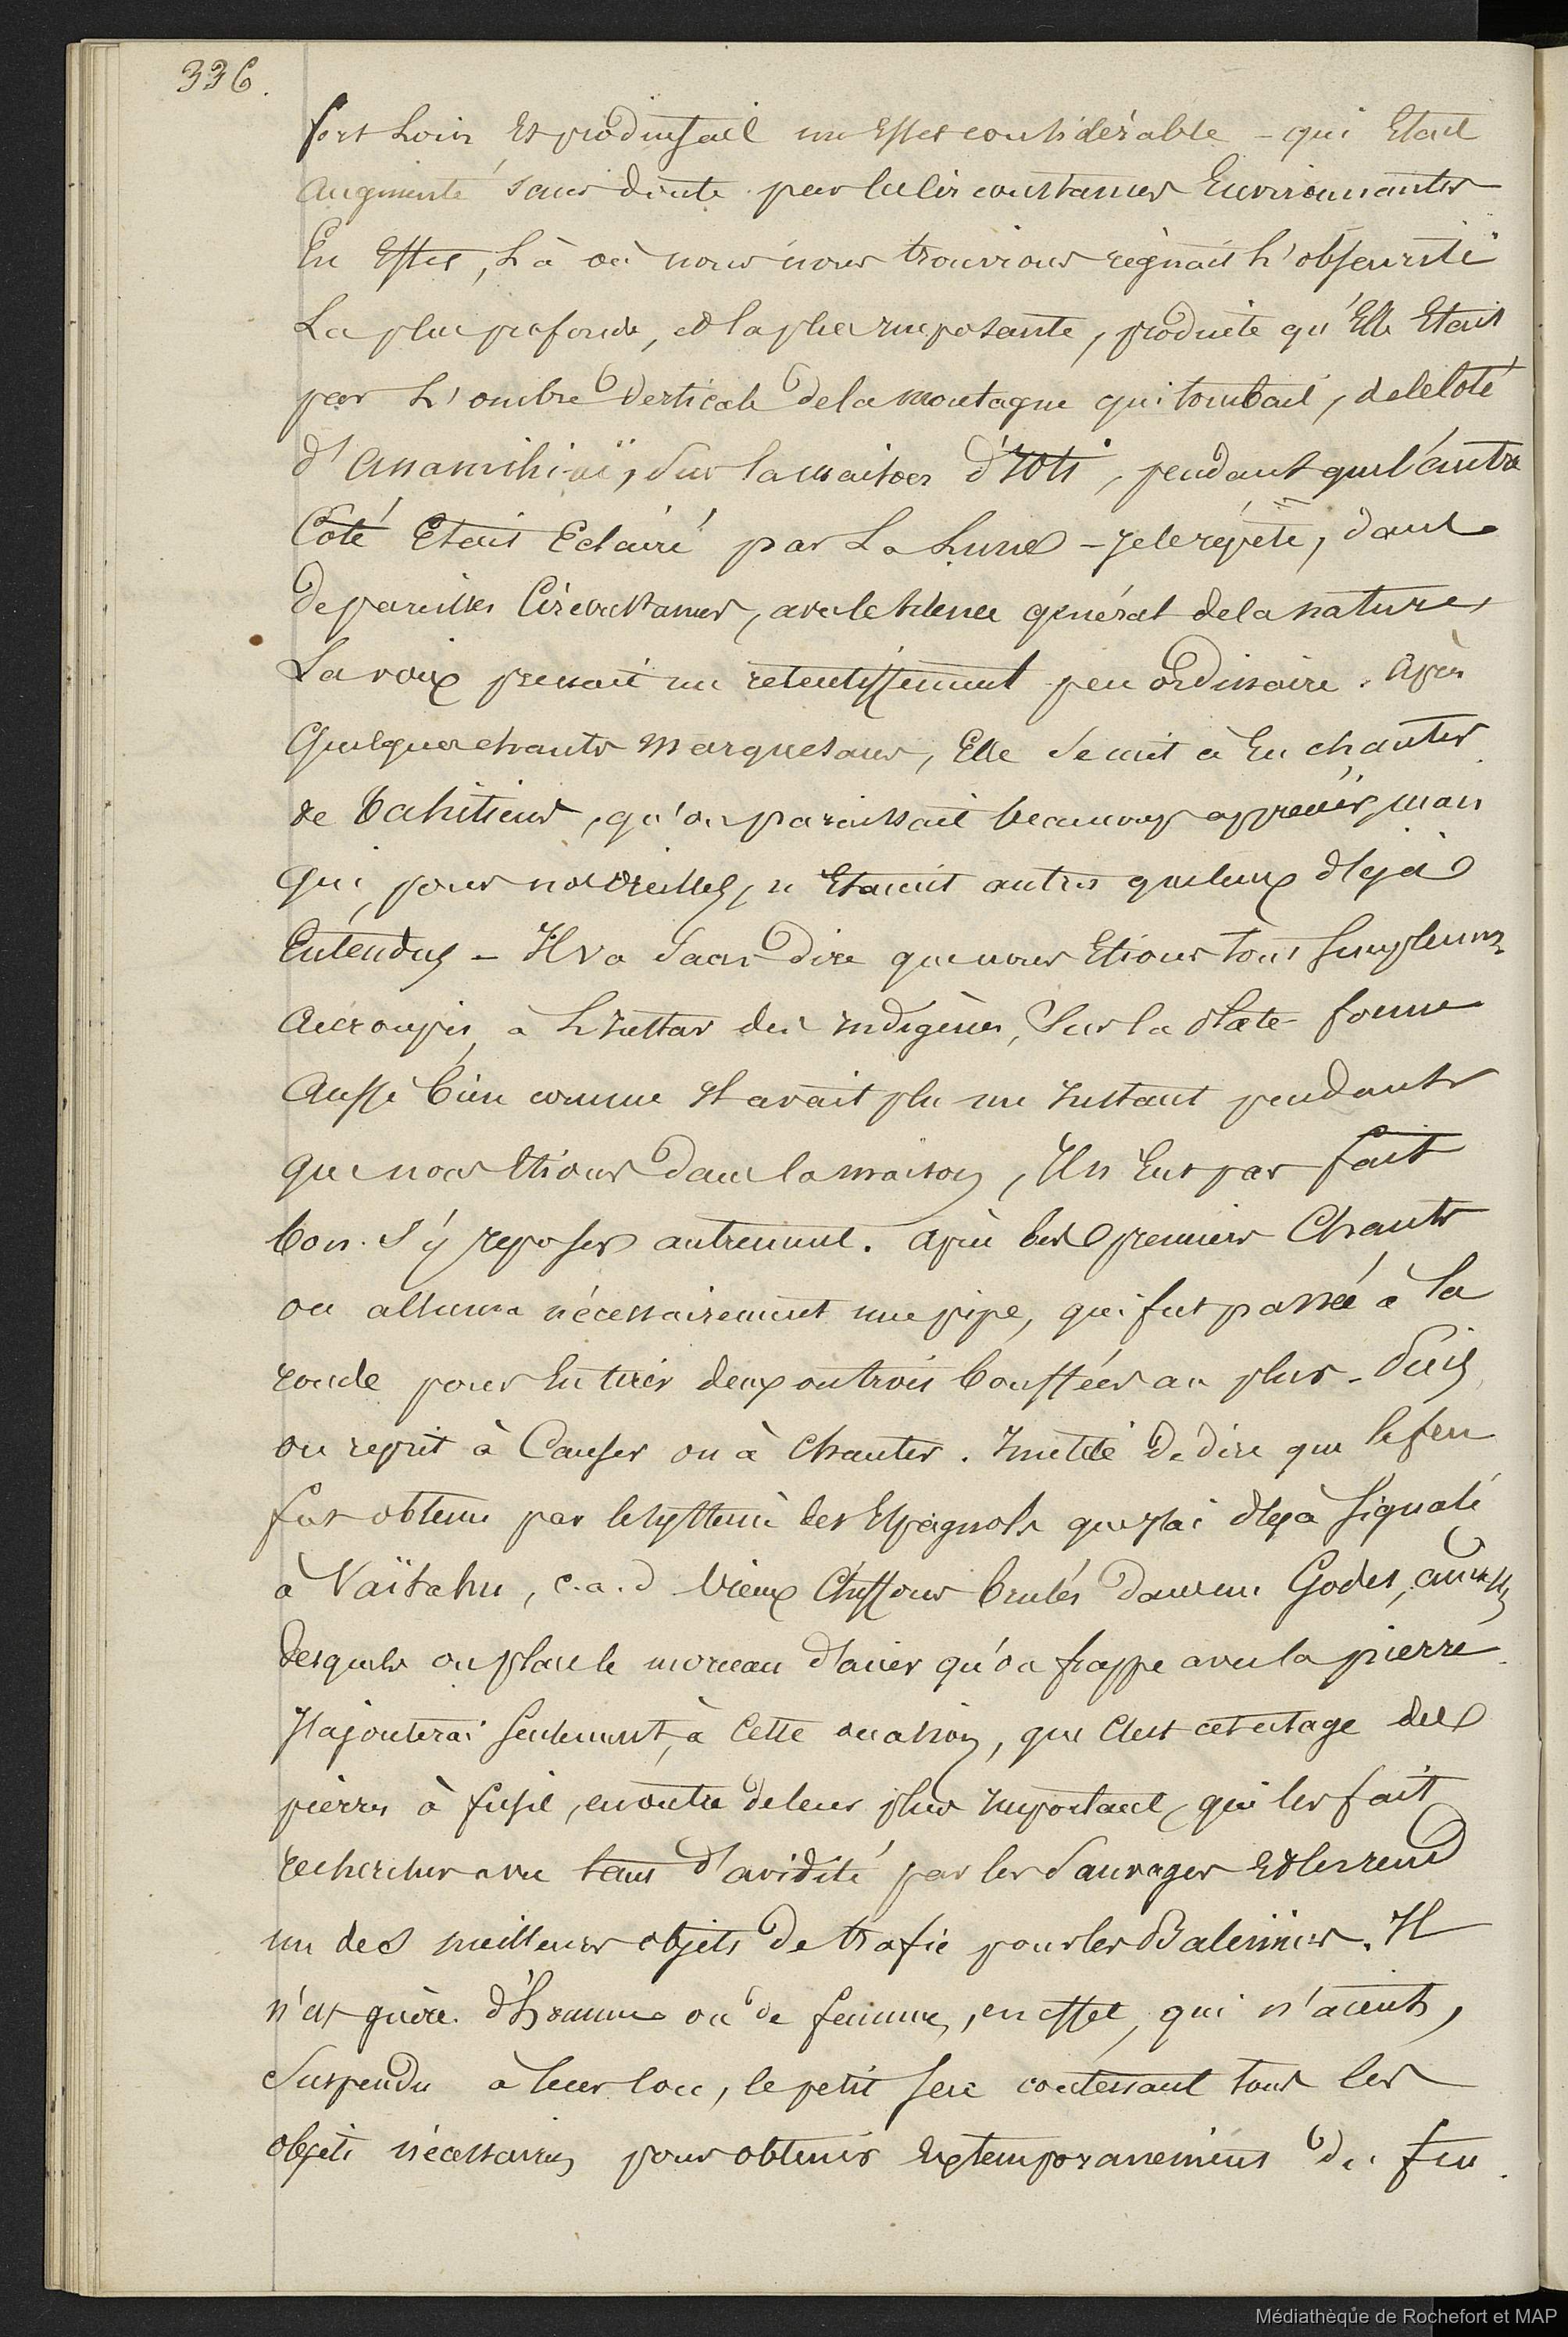 336.
fort loin et produisait un effet considérable - qui était
augmenté sans doute par les circonstances environnantes
En effet, là où nous nous trouvions règnait l'obscurité
La plus profonde, et la plus imposante, produite qu'elle était
par l'ombre verticale de la montagne qui tombait, de le côté
d'anamihiaï, sur la maison d'Ioti, pendant que l'autre
côté était éclairé par la lune - je le répète, dans
de pareilles circonstances, avec le silence général de la nature,
La voix prenait un retentissement peu ordinaire. après
quelques chants marquesans, Elle se mit à en chanter
de tahitiens, qu'on paraissait beaucoup apprécier, mais
qui, pour nos oreilles, n'étaient autres que ceux déjà
entendus - Il va sans dire que nous étions tout simplement
accroupis, à l'instar des indigènes, sur la plate forme
aussi bien comme il avait plu un instant pendant
que nous étions dans la maison, Il n'eut pas fait
bon s'y reposer autrement. après les premiers chants
on alluma nécessairement une pipe, qui fut passée à la
ronde pour en tirer deux ou trois bouffées au plus. Puis
on reprit à causer ou à chanter. Inutile de dire que le feu
fut obtenu par le système des Espagnols que j'ai déjà signalé
à Vaïtahu, c.a.d vieux chiffons brulés dans un Godet, au dessus
desquels on place le morceau d'acier qu'on frappe avec la pierre.
J'ajouterai seulement, à cette occasion, que c'est cet usage des
pierres à fusil, en outre de leur plus important, qui les fait
rechercher avec tant d'avidité par les sauvages et les rend
un des meilleurs objets de trafic pour les Baleiniers. Il
n'est guère d'homme ou de femme, en effet, qui n'aient,
suspendu à leur cou, le petit sac contenant tous les
objets nécessaires pour obtenir extemporanement du feu.
Médiathèque de Rochefort et MAP